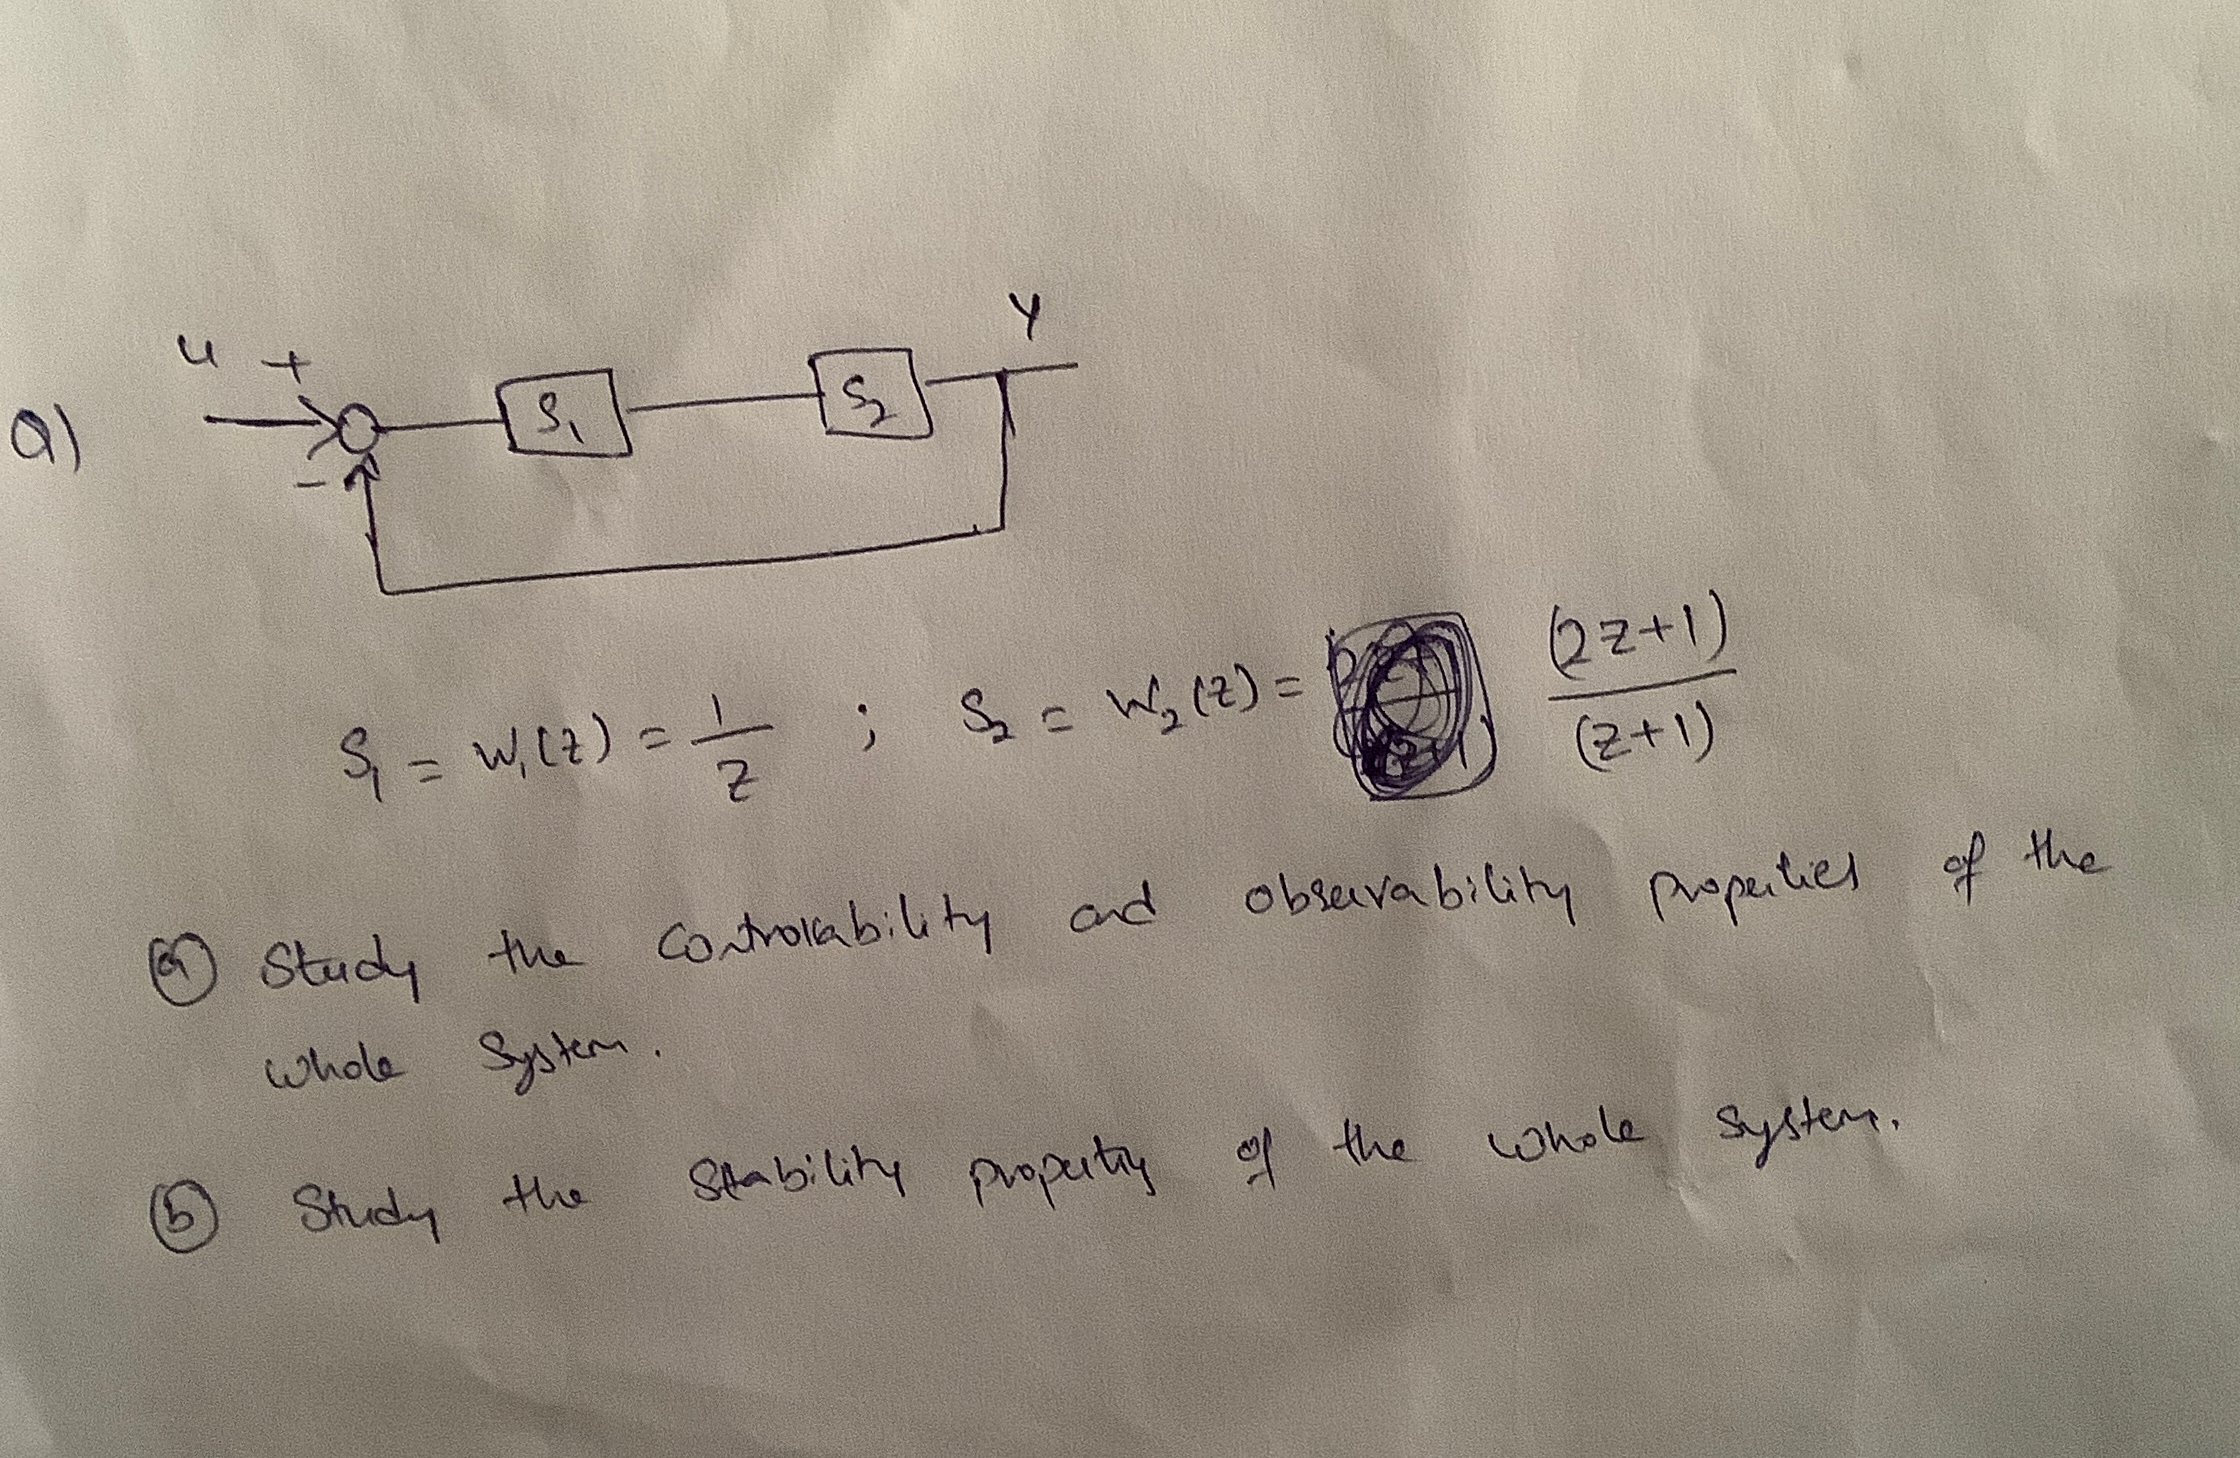 Q)
u + - S₁ S₂ y
S₁ = W₁(z) = 1/z ; S₂ = W₂(z) = (2z+1)/(z+1)
ⓐ Study the controllability and observability properties of the
whole system.
ⓑ Study the stability property of the whole system.